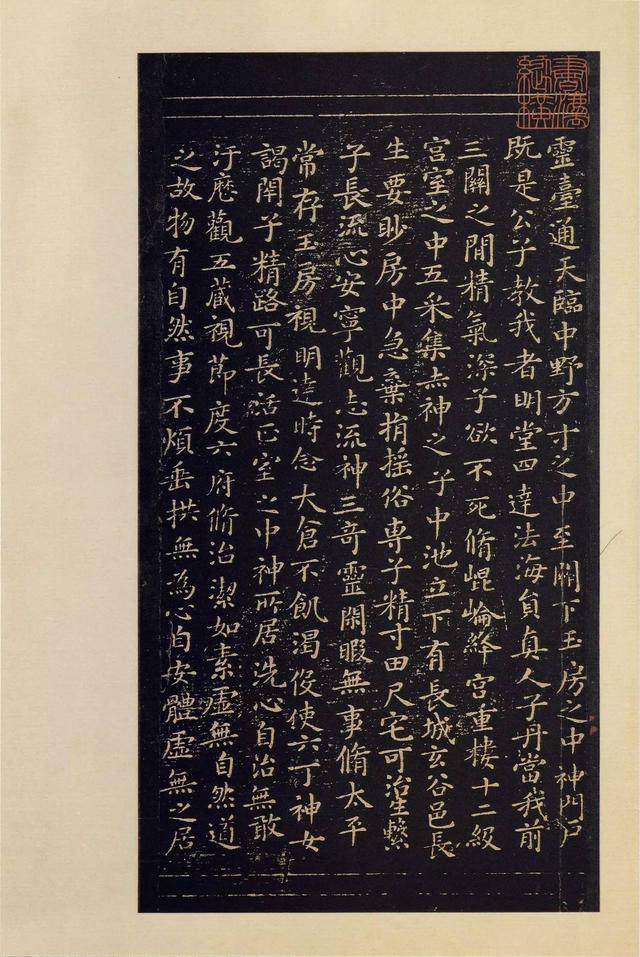 靈臺通天臨中野方寸之中至關下玉房之中神門戶
既是公子教我者明堂四達法海員真人子丹當我前
三關之間精氣深子欲不死脩崐崘絳宮重樓十二級
宮室之中五采集赤神之子中池立下有長城玄谷邑長
生要眇房中急棄捐搖俗專子精寸田尺宅可治生繫
子長流心安寧觀志流神三奇靈閑暇無事脩太平
常存玉房視明達時念大倉不飢渴役使六丁神女
謁閇子精路可長活正室之中神所居洗心自治無敢
汙歷觀五藏視節度六府脩治潔如素虛無自然道
之故物有自然事不煩垂拱無為心自安體虛無之居